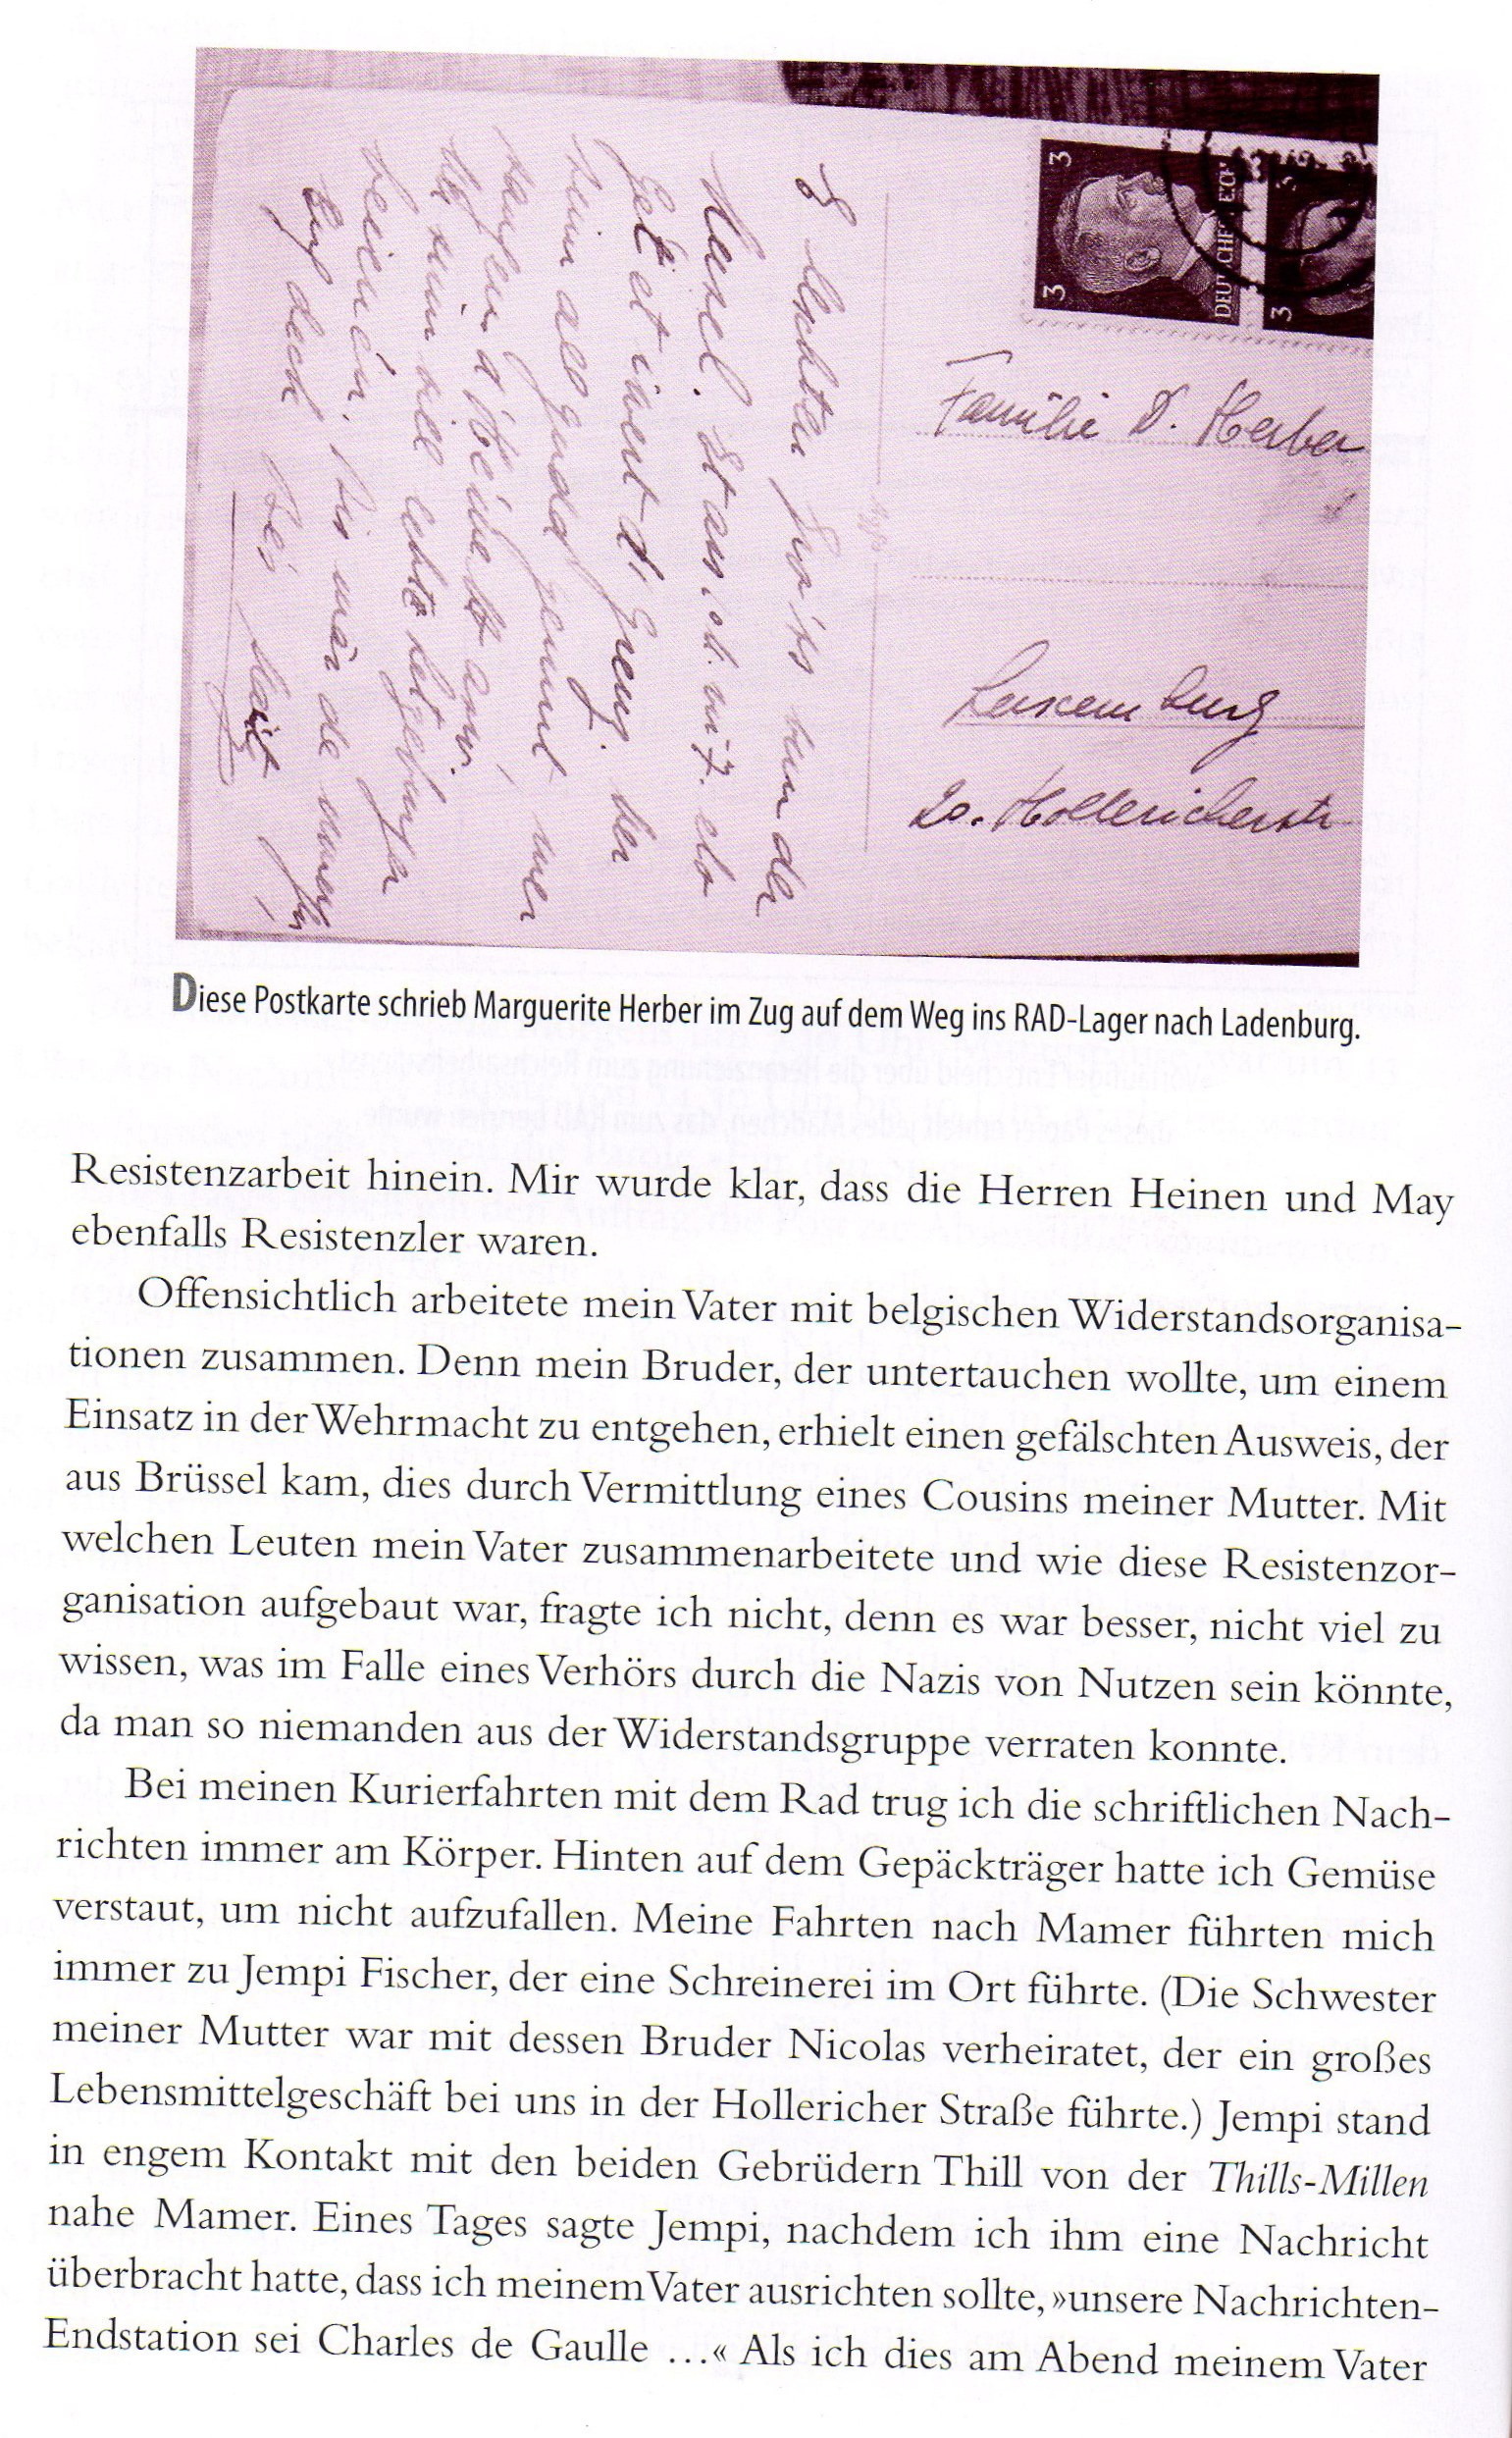 3
3
DEUTSCHES REICH
3
Familie D. Herber
Luxemburg
20. Hollericherstr
Diese Postkarte schrieb Marguerite Herber im Zug auf dem Weg ins RAD-Lager nach Ladenburg.
Resistenzarbeit hinein. Mir wurde klar, dass die Herren Heinen und May
ebenfalls Resistenzler waren.
Offensichtlich arbeitete mein Vater mit belgischen Widerstandsorganisa-
tionen zusammen. Denn mein Bruder, der untertauchen wollte, um einem
Einsatz in der Wehrmacht zu entgehen, erhielt einen gefälschten Ausweis, der
aus Brüssel kam, dies durch Vermittlung eines Cousins meiner Mutter. Mit
welchen Leuten mein Vater zusammenarbeitete und wie diese Resistenzor-
ganisation aufgebaut war, fragte ich nicht, denn es war besser, nicht viel zu
wissen, was im Falle eines Verhörs durch die Nazis von Nutzen sein könnte,
da man so niemanden aus der Widerstandsgruppe verraten konnte.
Bei meinen Kurierfahrten mit dem Rad trug ich die schriftlichen Nach-
richten immer am Körper. Hinten auf dem Gepäckträger hatte ich Gemüse
verstaut, um nicht aufzufallen. Meine Fahrten nach Mamer führten mich
immer zu Jempi Fischer, der eine Schreinerei im Ort führte. (Die Schwester
meiner Mutter war mit dessen Bruder Nicolas verheiratet, der ein großes
Lebensmittelgeschäft bei uns in der Hollericher Straße führte.) Jempi stand
in engem Kontakt mit den beiden Gebrüdern Thill von der Thills-Millen
nahe Mamer. Eines Tages sagte Jempi, nachdem ich ihm eine Nachricht
überbracht hatte, dass ich meinem Vater ausrichten sollte, »unsere Nachrichten-
Endstation sei Charles de Gaulle …« Als ich dies am Abend meinem Vater